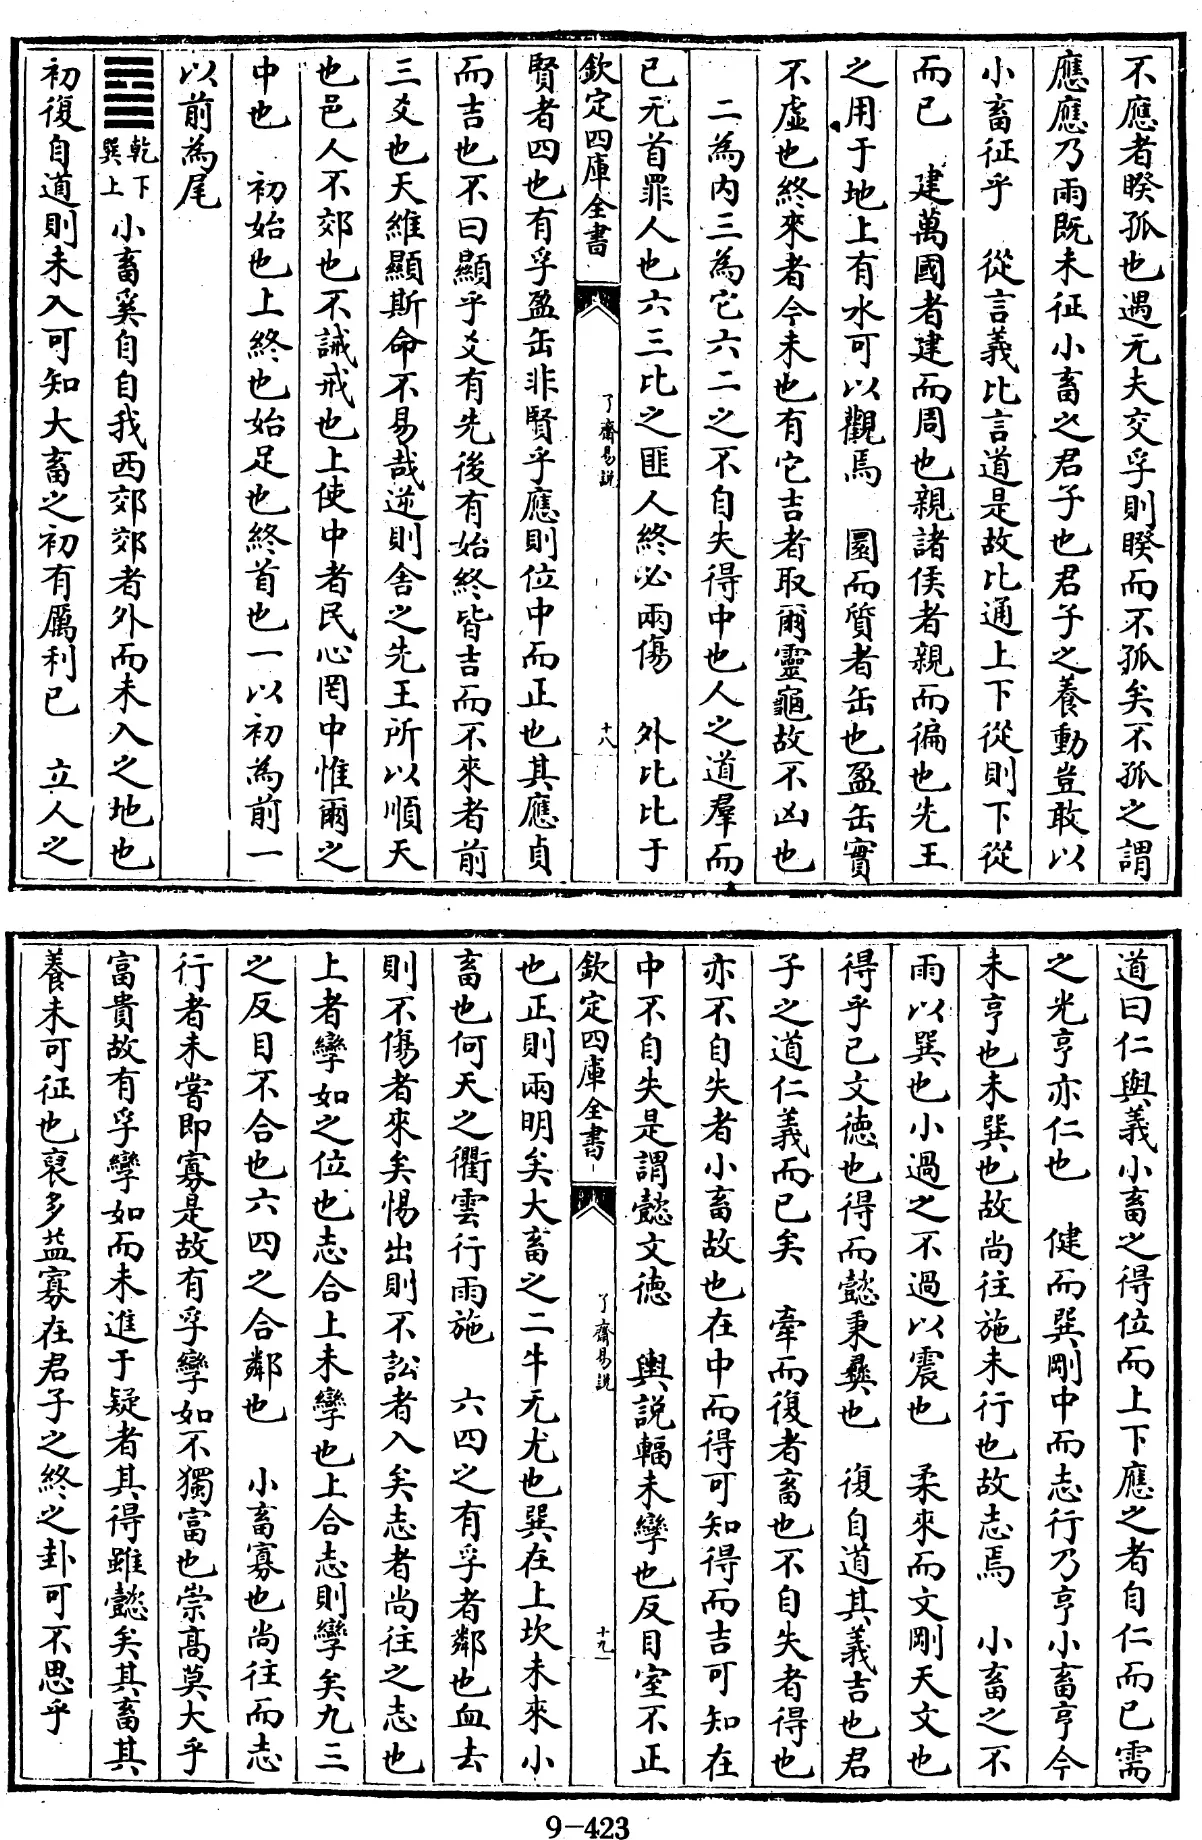 不應者睽孤也遇元夫交孚則睽而不孤矣不孤之謂
應應乃雨既未征小畜之君子也君子之養動豈敢以
小畜征乎　從言義比言道是故比通上下從則下從
而已　建萬國者建而周也親諸侯者親而徧也先王
之用于地上有水可以觀焉　圜而質者缶也盈缶實
不虛也終來者今未也有它吉者取爾靈龜故不凶也
二為內三為它六二之不自失得中也人之道羣而
已无首罪人也六三比之匪人終必兩傷　外比比于
欽定四庫全書　了齋易説　十八
賢者四也有孚盈缶非賢乎應則位中而正也其應貞
而吉也不曰顯乎爻有先後有始終皆吉而不來者前
三爻也天維顯斯命不易哉逆則舍之先王所以順天
也邑人不郊也不誡戒也上使中者民心罔中惟爾之
中也　初始也上終也始足也終首也一以初為前一
以前為尾
䷈乾下巽上小畜奚自自我西郊郊者外而未入之地也
初復自道則未入可知大畜之初有厲利已　立人之
道曰仁與義小畜之得位而上下應之者自仁而已需
之光亨亦仁也　健而巽剛中而志行乃亨小畜亨今
未亨也未巽也故尚往施未行也故志焉　小畜之不
雨以巽也小過之不過以震也　柔來而文剛天文也
得乎已文德也得而懿秉彝也　復自道其義吉也君
子之道仁義而已矣　牽而復者畜也不自失者得也
亦不自失者小畜故也在中而得可知得而吉可知在
中不自失是謂懿文德　輿説輻未孿也反目室不正
欽定四庫全書　了齋易説　十九
也正則兩明矣大畜之二牛无尤也巽在上坎未來小
畜也何天之衢雲行雨施　六四之有孚者鄰也血去
則不傷者來矣惕出則不訟者入矣志者尚往之志也
上者孿如之位也志合上未孿也上合志則孿矣九三
之反目不合也六四之合鄰也　小畜寡也尚往而志
行者未嘗即寡是故有孚孿如不獨富也崇高莫大乎
富貴故有孚孿如而未進于疑者其得雖懿矣其畜其
養未可征也裒多益寡在君子之終之卦可不思乎
9-423